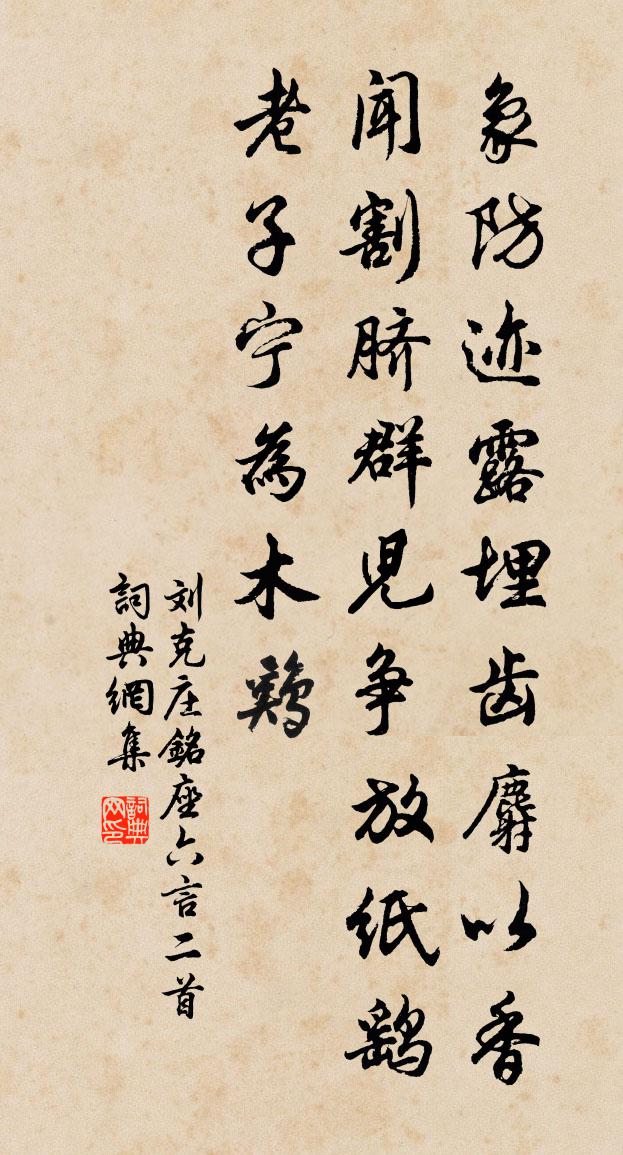 象防迹露埋齿麝以香
闻割脐群児争放纸鹞
老子宁為木鷄
刘克庄銘座六言二首
詞典網集
詞典网印